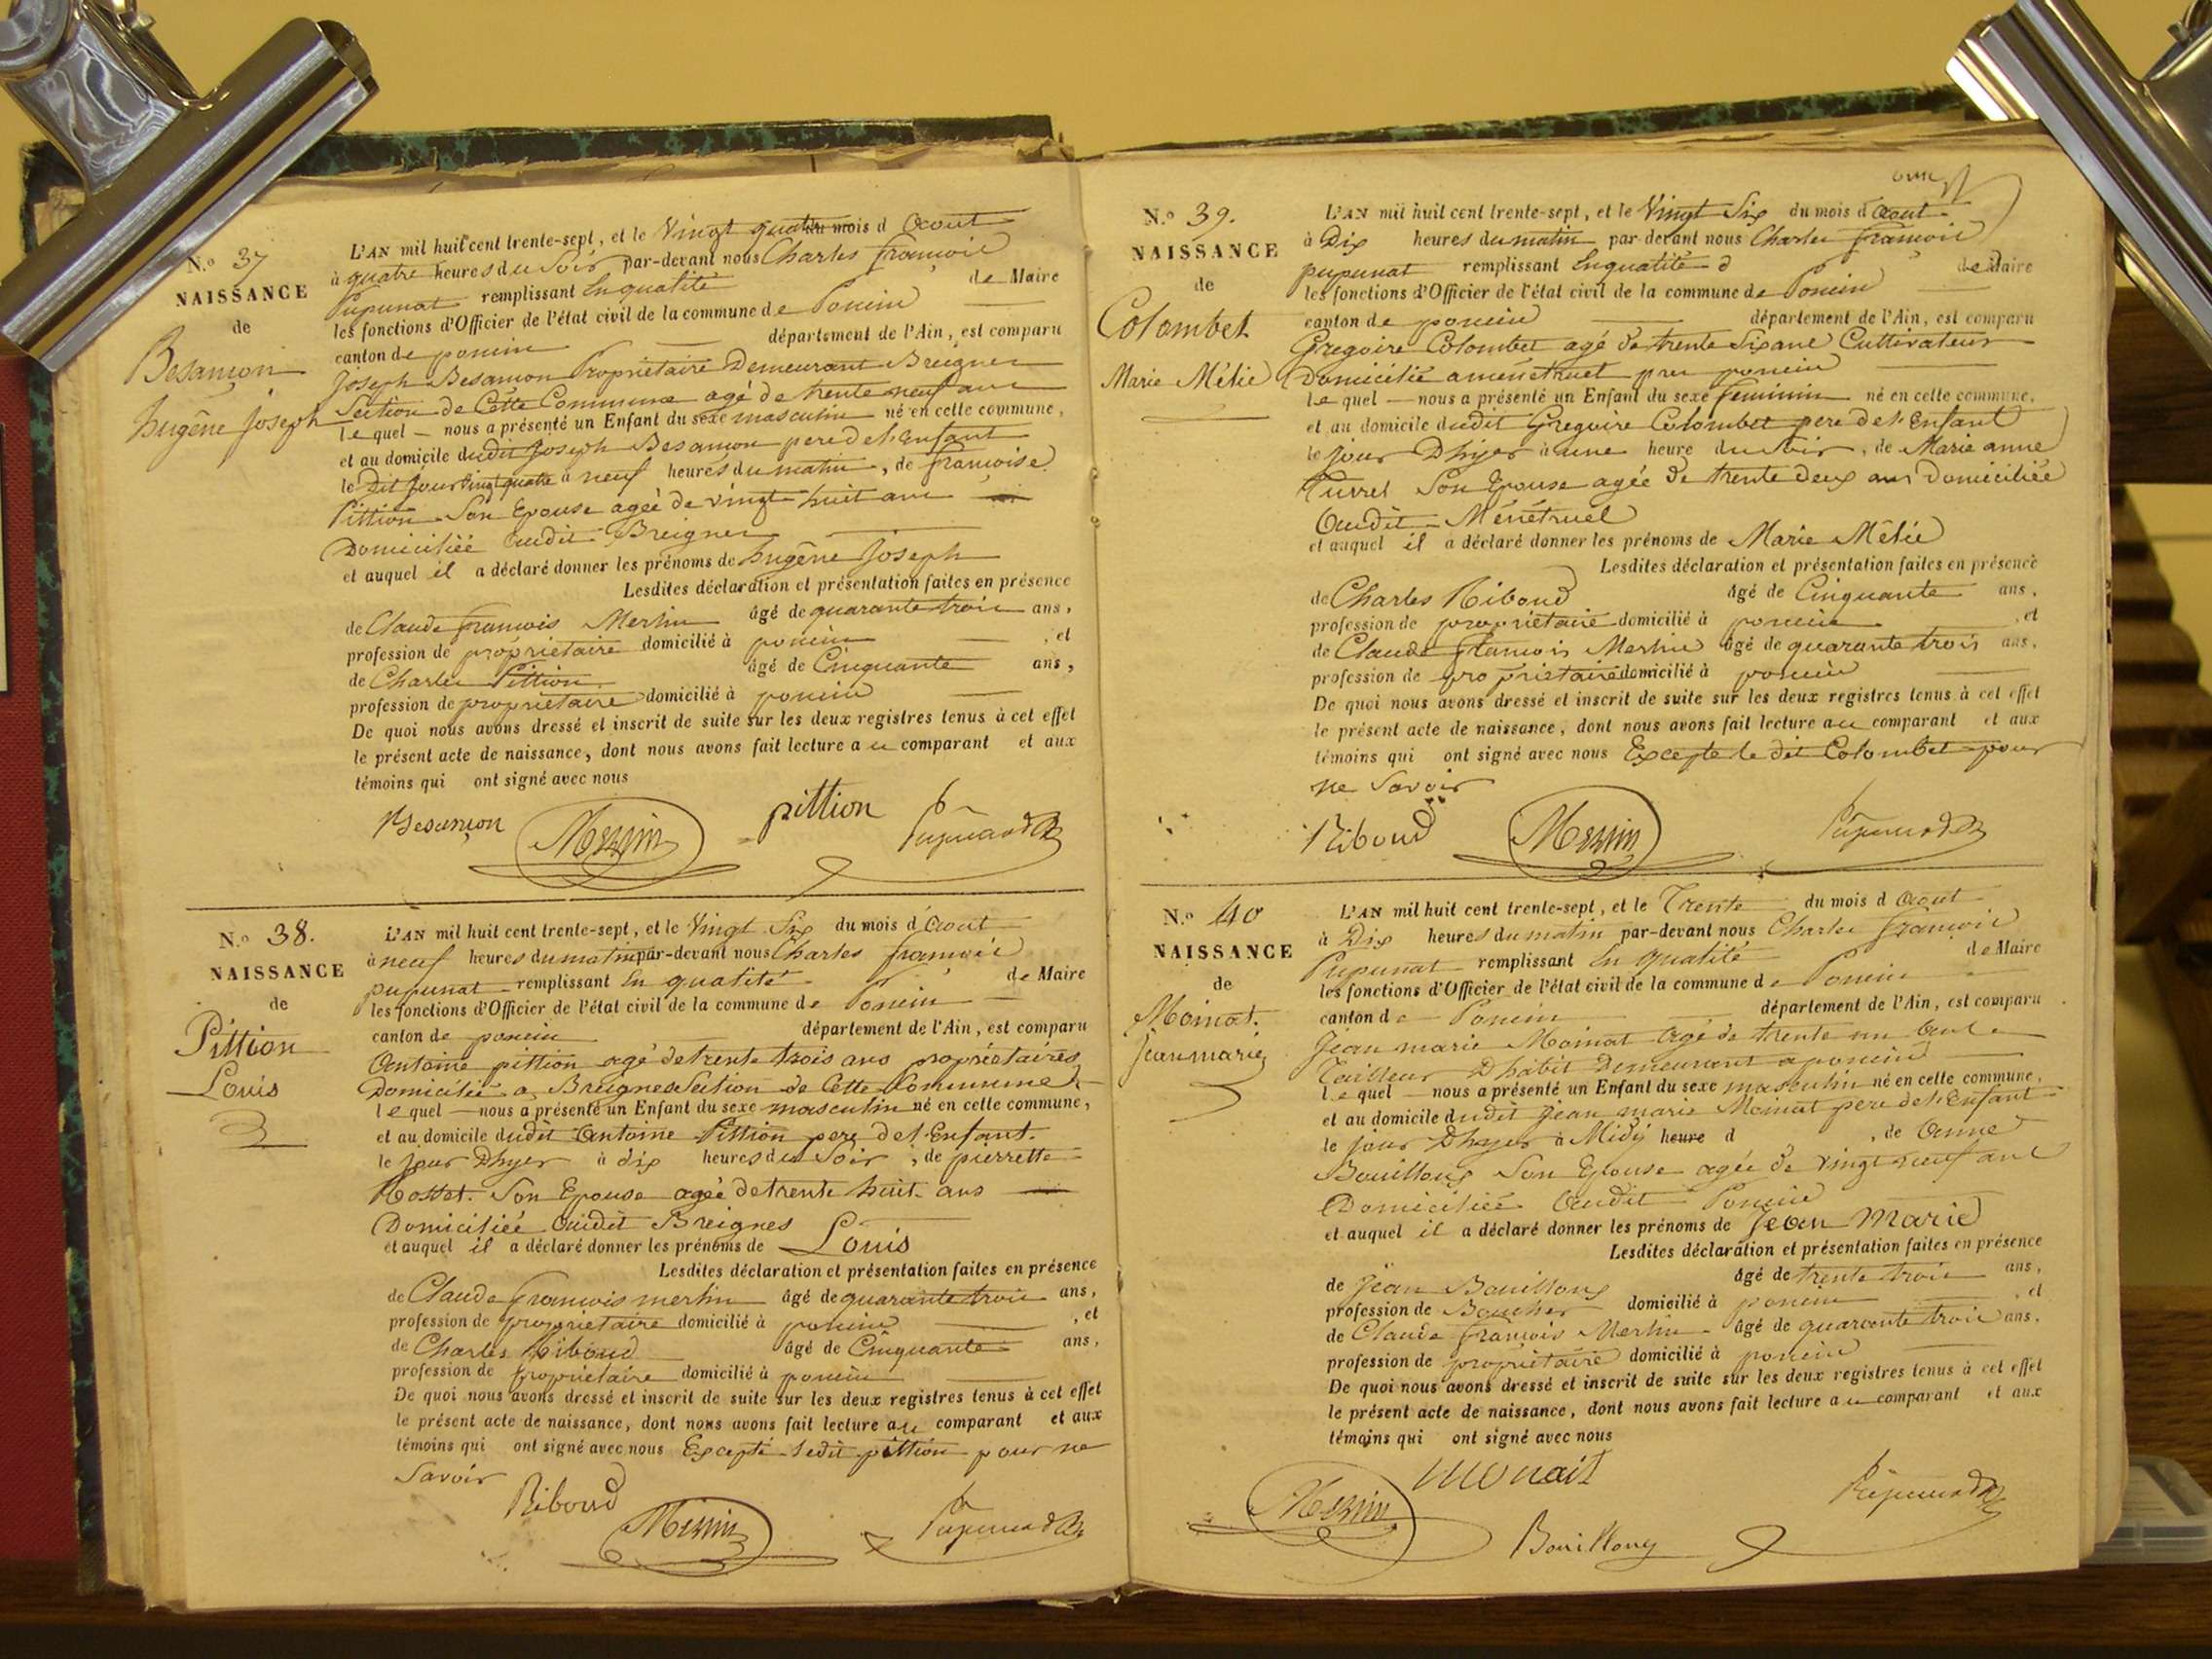 N.o 37
NAISSANCE
de
Besançon
Eugêne Joseph
L'AN mil huit cent trente-sept, et le Vingt quatre du mois d Aout
à quatre heures du Soir par-devant nous Charles françois
Pupunat remplissant En qualité de Maire
les fonctions d'Officier de l'état civil de la commune de Poncin
canton de poncin département de l'Ain, est comparu
Joseph Besançon Propriétaire Demeurant Breignes
Section de Cette Commune agé de trente neuf ans
lequel nous a présenté un Enfant du sexe masculin né en cette commune,
et au domicile dudit Joseph Besançon pere de l'Enfant
le Dit Jour Vingt quatre à neuf heures du matin, de françoise
Pittion Son Epouse agée de vingt huit ans
Domiciliée audit Breignes
et auquel il a déclaré donner les prénoms de Eugêne Joseph
Lesdites déclaration et présentation faites en présence
de Claude françois Merlin âgé de quarante trois ans,
profession de propriétaire domicilié à poncin, et
de Charles Pittion âgé de Cinquante ans,
profession de propriétaire domicilié à poncin
De quoi nous avons dressé et inscrit de suite sur les deux registres tenus à cet effet
le présent acte de naissance, dont nous avons fait lecture au comparant et aux
témoins qui ont signé avec nous
Besançon Merlin pittion Pupunat
N.o 38.
NAISSANCE
de
Pittion
Louis
L'AN mil huit cent trente-sept, et le Vingt Six du mois d'Aout
à neuf heures du matin par-devant nous Charles françois
pupunat remplissant En qualité de Maire
les fonctions d'Officier de l'état civil de la commune de Poncin
canton de poncin département de l'Ain, est comparu
Antoine pittion agé de trente trois ans propriétaires
Domicilié a Breignes Section de Cette Commune
lequel nous a présenté un Enfant du sexe masculin né en cette commune,
et au domicile dudit Antoine Pittion pere de l'Enfant.
le jour Dhyer à dix heures du Soir, de pierrette
Son Epouse agée de trente huit ans
Domiciliée audit Breignes
et auquel il a déclaré donner les prénoms de Louis
Lesdites déclaration et présentation faites en présence
de Claude françois merlin âgé de quarante trois ans,
profession de propriétaire domicilié à poncin, et
de Charles Riboud âgé de Cinquante ans,
profession de propriétaire domicilié à poncin
De quoi nous avons dressé et inscrit de suite sur les deux registres tenus à cet effet
le présent acte de naissance, dont nous avons fait lecture au comparant et aux
témoins qui ont signé avec nous Excepté ledit pittion pour ne
Savoir
Riboud Merlin Pupunat
N.o 39.
NAISSANCE
de
Colombet
Marie Mélie
L'AN mil huit cent trente-sept, et le Vingt Six du mois d'Aout
à Dix heures du matin par-devant nous Charles françois
pupunat remplissant En qualité d de Maire
les fonctions d'Officier de l'état civil de la commune de Poncin
canton de poncin département de l'Ain, est comparu
Gregoire Colombet agé de trente Six ans Cultivateur
Domicilié a menetruel pres poncin
lequel nous a présenté un Enfant du sexe feminin né en cette commune,
et au domicile dudit Gregoire Colombet pere de l'Enfant
le jour Dhyer à une heure du Soir, de Marie anne
Son Epouse agée de trente deux ans Domiciliée
Audit Ménétruel
et auquel il a déclaré donner les prénoms de Marie Mélie
Lesdites déclaration et présentation faites en présence
de Charles Riboud âgé de Cinquante ans,
profession de propriétaire domicilié à poncin, et
de Claude françois Merlin âgé de quarante trois ans,
profession de propriétaire domicilié à poncin
De quoi nous avons dressé et inscrit de suite sur les deux registres tenus à cet effet
le présent acte de naissance, dont nous avons fait lecture au comparant et aux
témoins qui ont signé avec nous Excepte le dit Colombet pour
ne Savoir
Riboud Merlin Pupunat
N.o 40
NAISSANCE
de
Moinat.
Jean marie
L'AN mil huit cent trente-sept, et le Trente du mois d Aout
à Dix heures du matin par-devant nous Charles françois
Pupunat remplissant En qualité de Maire
les fonctions d'Officier de l'état civil de la commune de Poncin
canton de Poncin département de l'Ain, est comparu
Jean marie Moinat Agé de trente un ans
Tailleur Dhabit Demeurant a poncin
lequel nous a présenté un Enfant du sexe masculin né en cette commune,
et au domicile dudit Jean marie Moinat pere de l'Enfant
le jour Dhyer à Midy heure d, de Anne
Bouilloux Son Epouse agée de vingt neuf ans
Domiciliée Audit Poncin
et auquel il a déclaré donner les prénoms de Jean Marie
Lesdites déclaration et présentation faites en présence
de Jean Bouilloux âgé de trente trois ans,
profession de Boucher domicilié à poncin, et
de Claude françois Merlin âgé de quarante trois ans,
profession de propriétaire domicilié à poncin
De quoi nous avons dressé et inscrit de suite sur les deux registres tenus à cet effet
le présent acte de naissance, dont nous avons fait lecture au comparant et aux
témoins qui ont signé avec nous
Merlin Pupunat